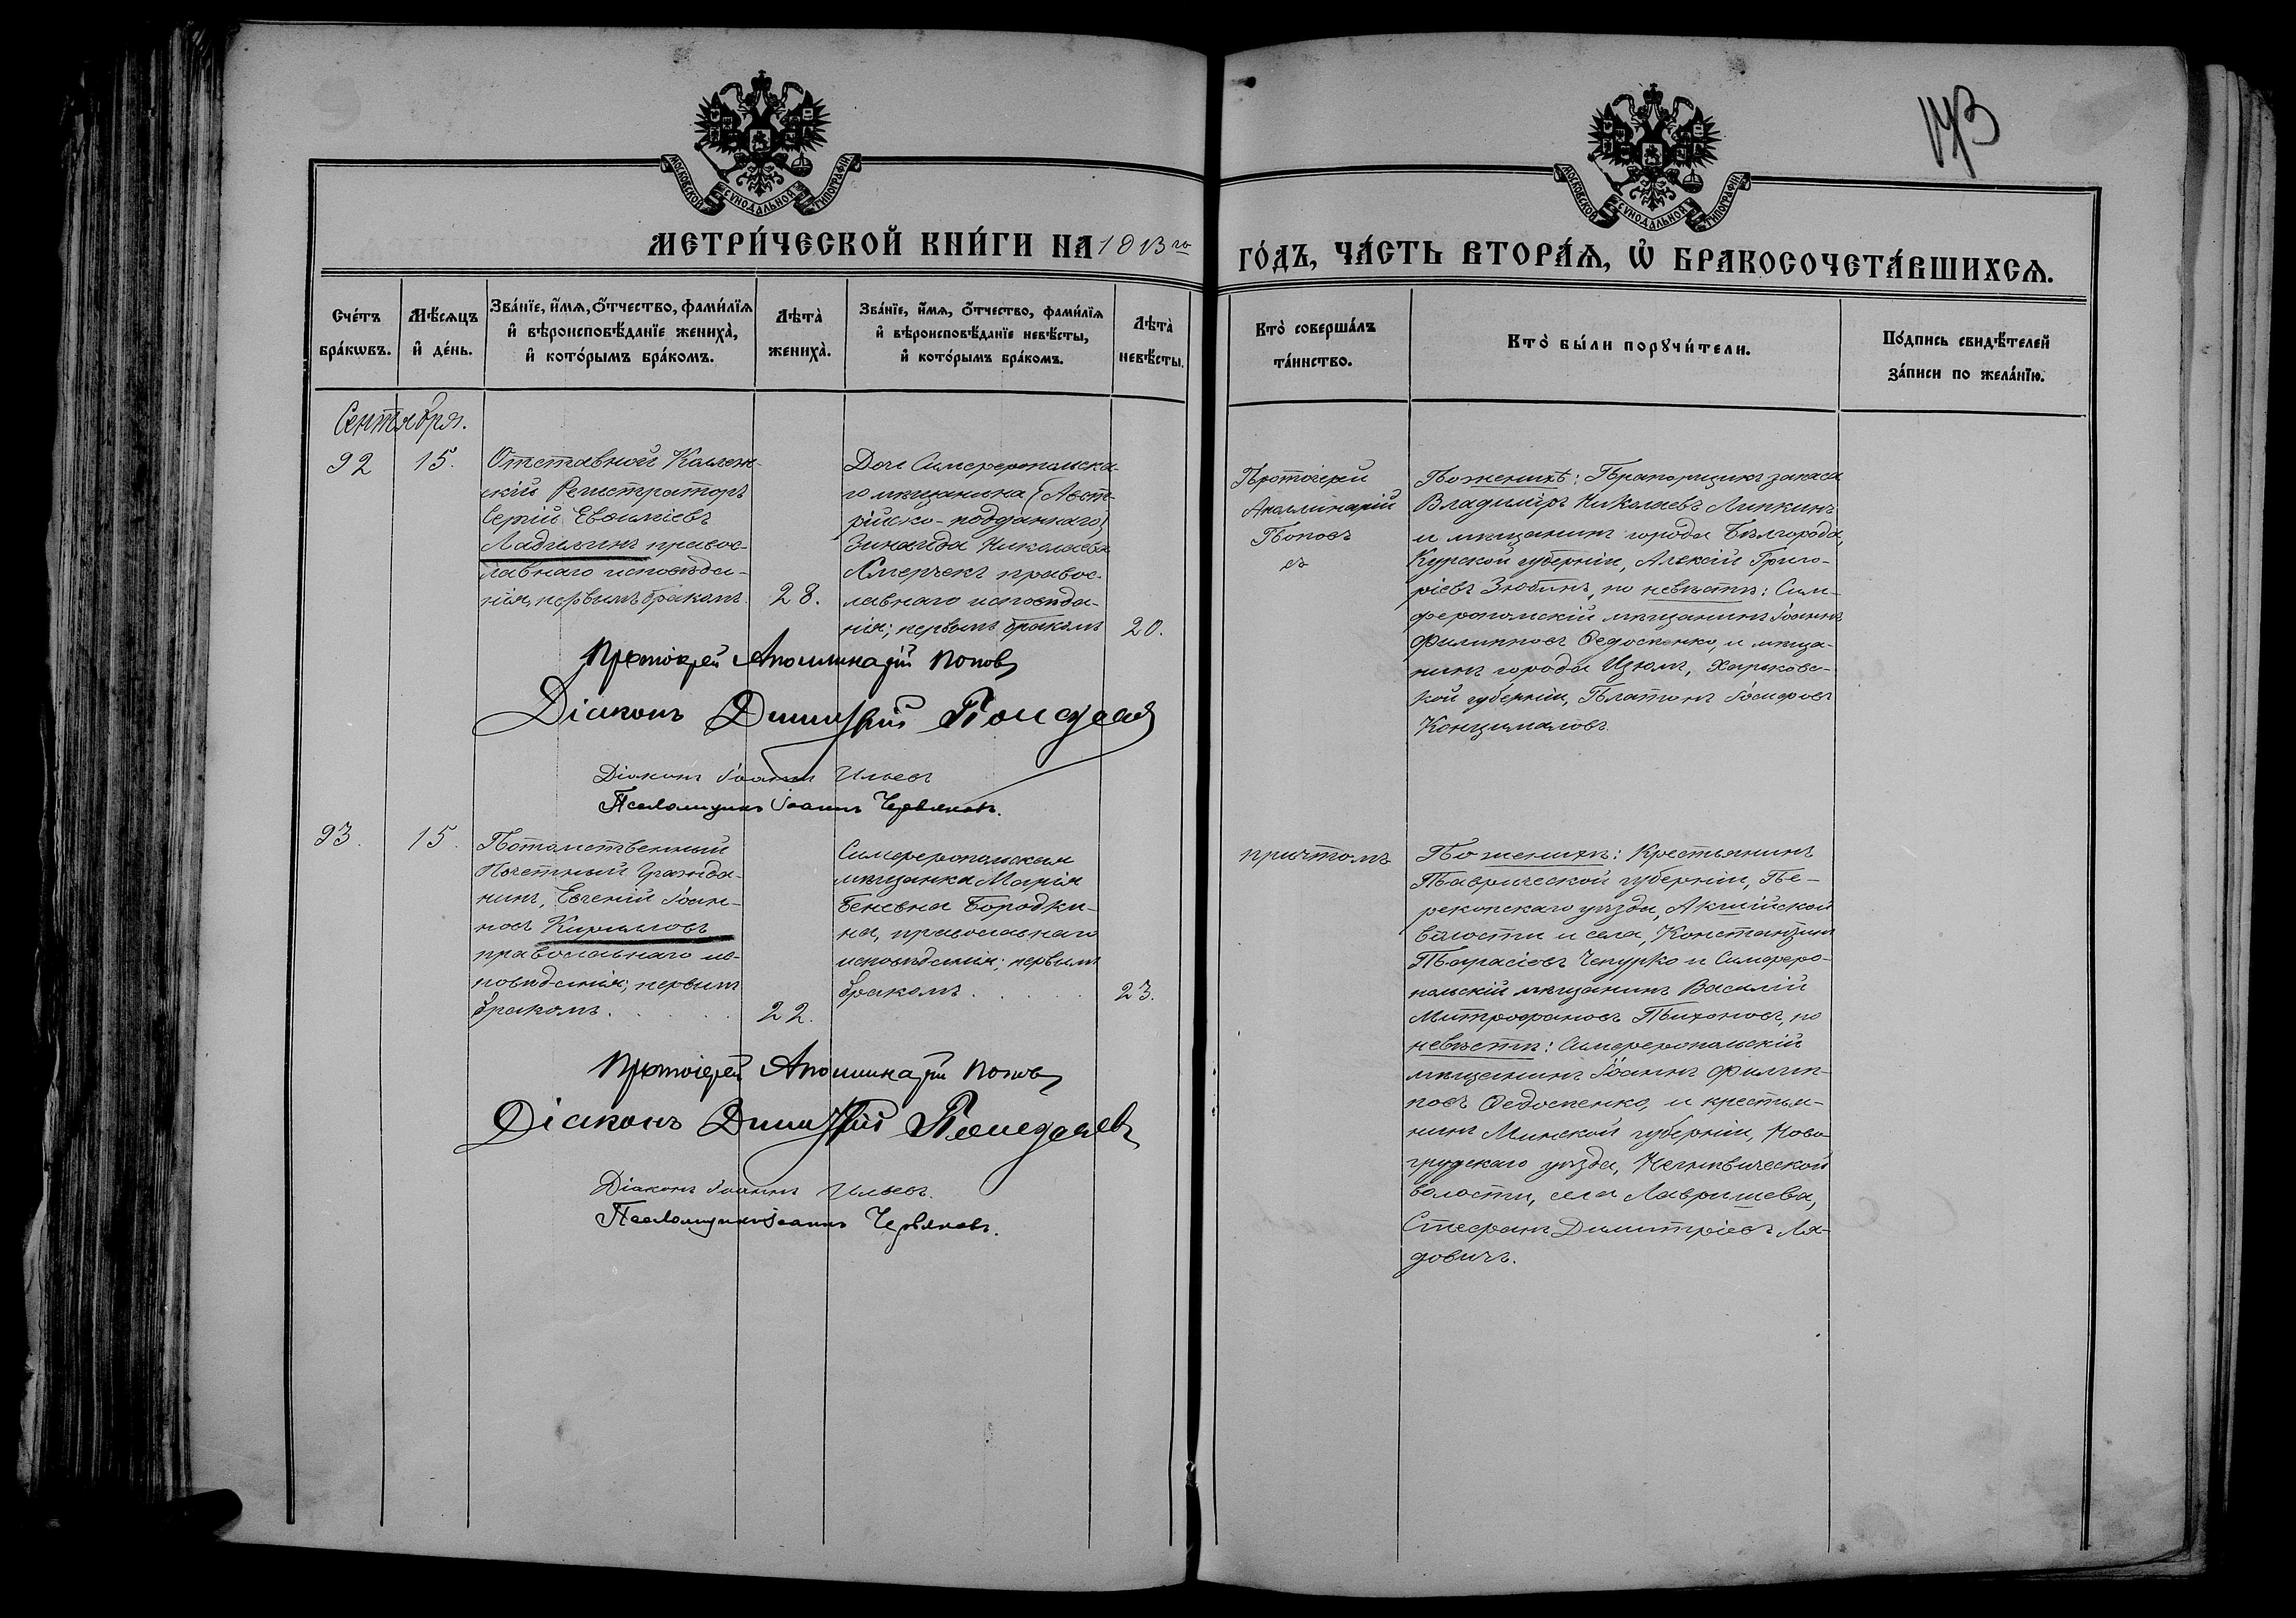 173
МОСКОВСКОЙ СУНОДАЛЬНОЙ ТИПОГРАФІИ
МОСКОВСКОЙ СУНОДАЛЬНОЙ ТИПОГРАФІИ
МЕТРИ́ЧЕСКОЙ КНИ́ГИ НА 1913 го
ГО́ДЪ, ЧА́СТЬ ВТОРА́Ѧ, Ѽ БРАКОСОЧЕТА́ВШИХСѦ.
Сче́тъ
бра́кѡвъ.
Мѣ́сѧцъ
и҆ де́нь.
Зва́нїе, и҆́мѧ, ѻ҆́тчество, фами́лїѧ
и҆ вѣроисповѣ́данїе жениха̀,
и҆ кото́рымъ бра́комъ.
Лѣта̀
жениха̀.
Зва́нїе, и҆́мѧ, ѻ҆́тчество, фами́лїѧ
и҆ вѣроисповѣ́данїе невѣ́сты,
и҆ кото́рымъ бра́комъ.
Лѣта̀
невѣ́сты.
Кто̀ соверша́лъ
та́инство.
Кто̀ бы́ли порꙋчи́тели.
По́дпись свидѣ́телей
за́писи по жела́нїю.
Сентября.
92
15.
Отставной Коллеж-
скій Регистраторъ
Сергій Евѳиміевъ
Ладыгинъ правос-
лавнаго исповѣда-
нія, первымъ бракомъ.
28.
Дочь Симферопольска-
го мѣщанина (Авст-
рійско-подданнаго)
Зинаида Николаева
правос-
лавнаго исповѣда-
нія; первымъ бракомъ
20.
Протоіерей
Аполлинарій
Поповъ
съ
По женихѣ: Прапорщикъ запаса
Владиміръ Николаевъ Липкинъ
и мѣщанинъ города Бѣлгорода,
Курской губерніи, Алексій Григо-
ріевъ Зюбинъ, по невѣстѣ: Сим-
феропольскій мѣщанинъ Іоаннъ
Филипповъ Ѳедосенко, и мѣща-
нинъ города Изюмъ, Харьковс-
кой губерніи, Платонъ Іосифовъ
Протоіерей Аполлинарій Поповъ
Діаконъ Димитрій
Діаконъ Іоаннъ Ильевъ
Псаломщикъ Іоаннъ Червяковъ.
93.
15.
Потомственный
Почетный Гражда-
нинъ, Евгеній Іоан-
новъ Кирилловъ
православнаго ис-
повѣданія; первымъ
бракомъ.
22.
Симферопольская
мѣщанка Марія
Бородки-
на, православнаго
исповѣданія; первымъ
бракомъ
23.
причтомъ
По женихѣ: Крестьянинъ
Таврической губерніи, Пе-
рекопскаго уѣзда,
волости и села, Константинъ
Тарасіевъ Чепурко и Симферо-
польскій мѣщанинъ Василій
Митрофановъ Тихоновъ, по
невѣстѣ: Симферопольскій
мѣщанинъ Іоаннъ Филип-
повъ Ѳедосенко, и крестья-
нинъ Минской губерніи, Ново-
грудскаго уѣзда,
волости, села Лавришева,
Стефанъ Димитріевъ Ля-
довичъ.
Протоіерей Аполлинарій Поповъ
Діаконъ Димитрій
Діаконъ Іоаннъ Ильевъ.
Псаломщикъ Іоаннъ Червяковъ.